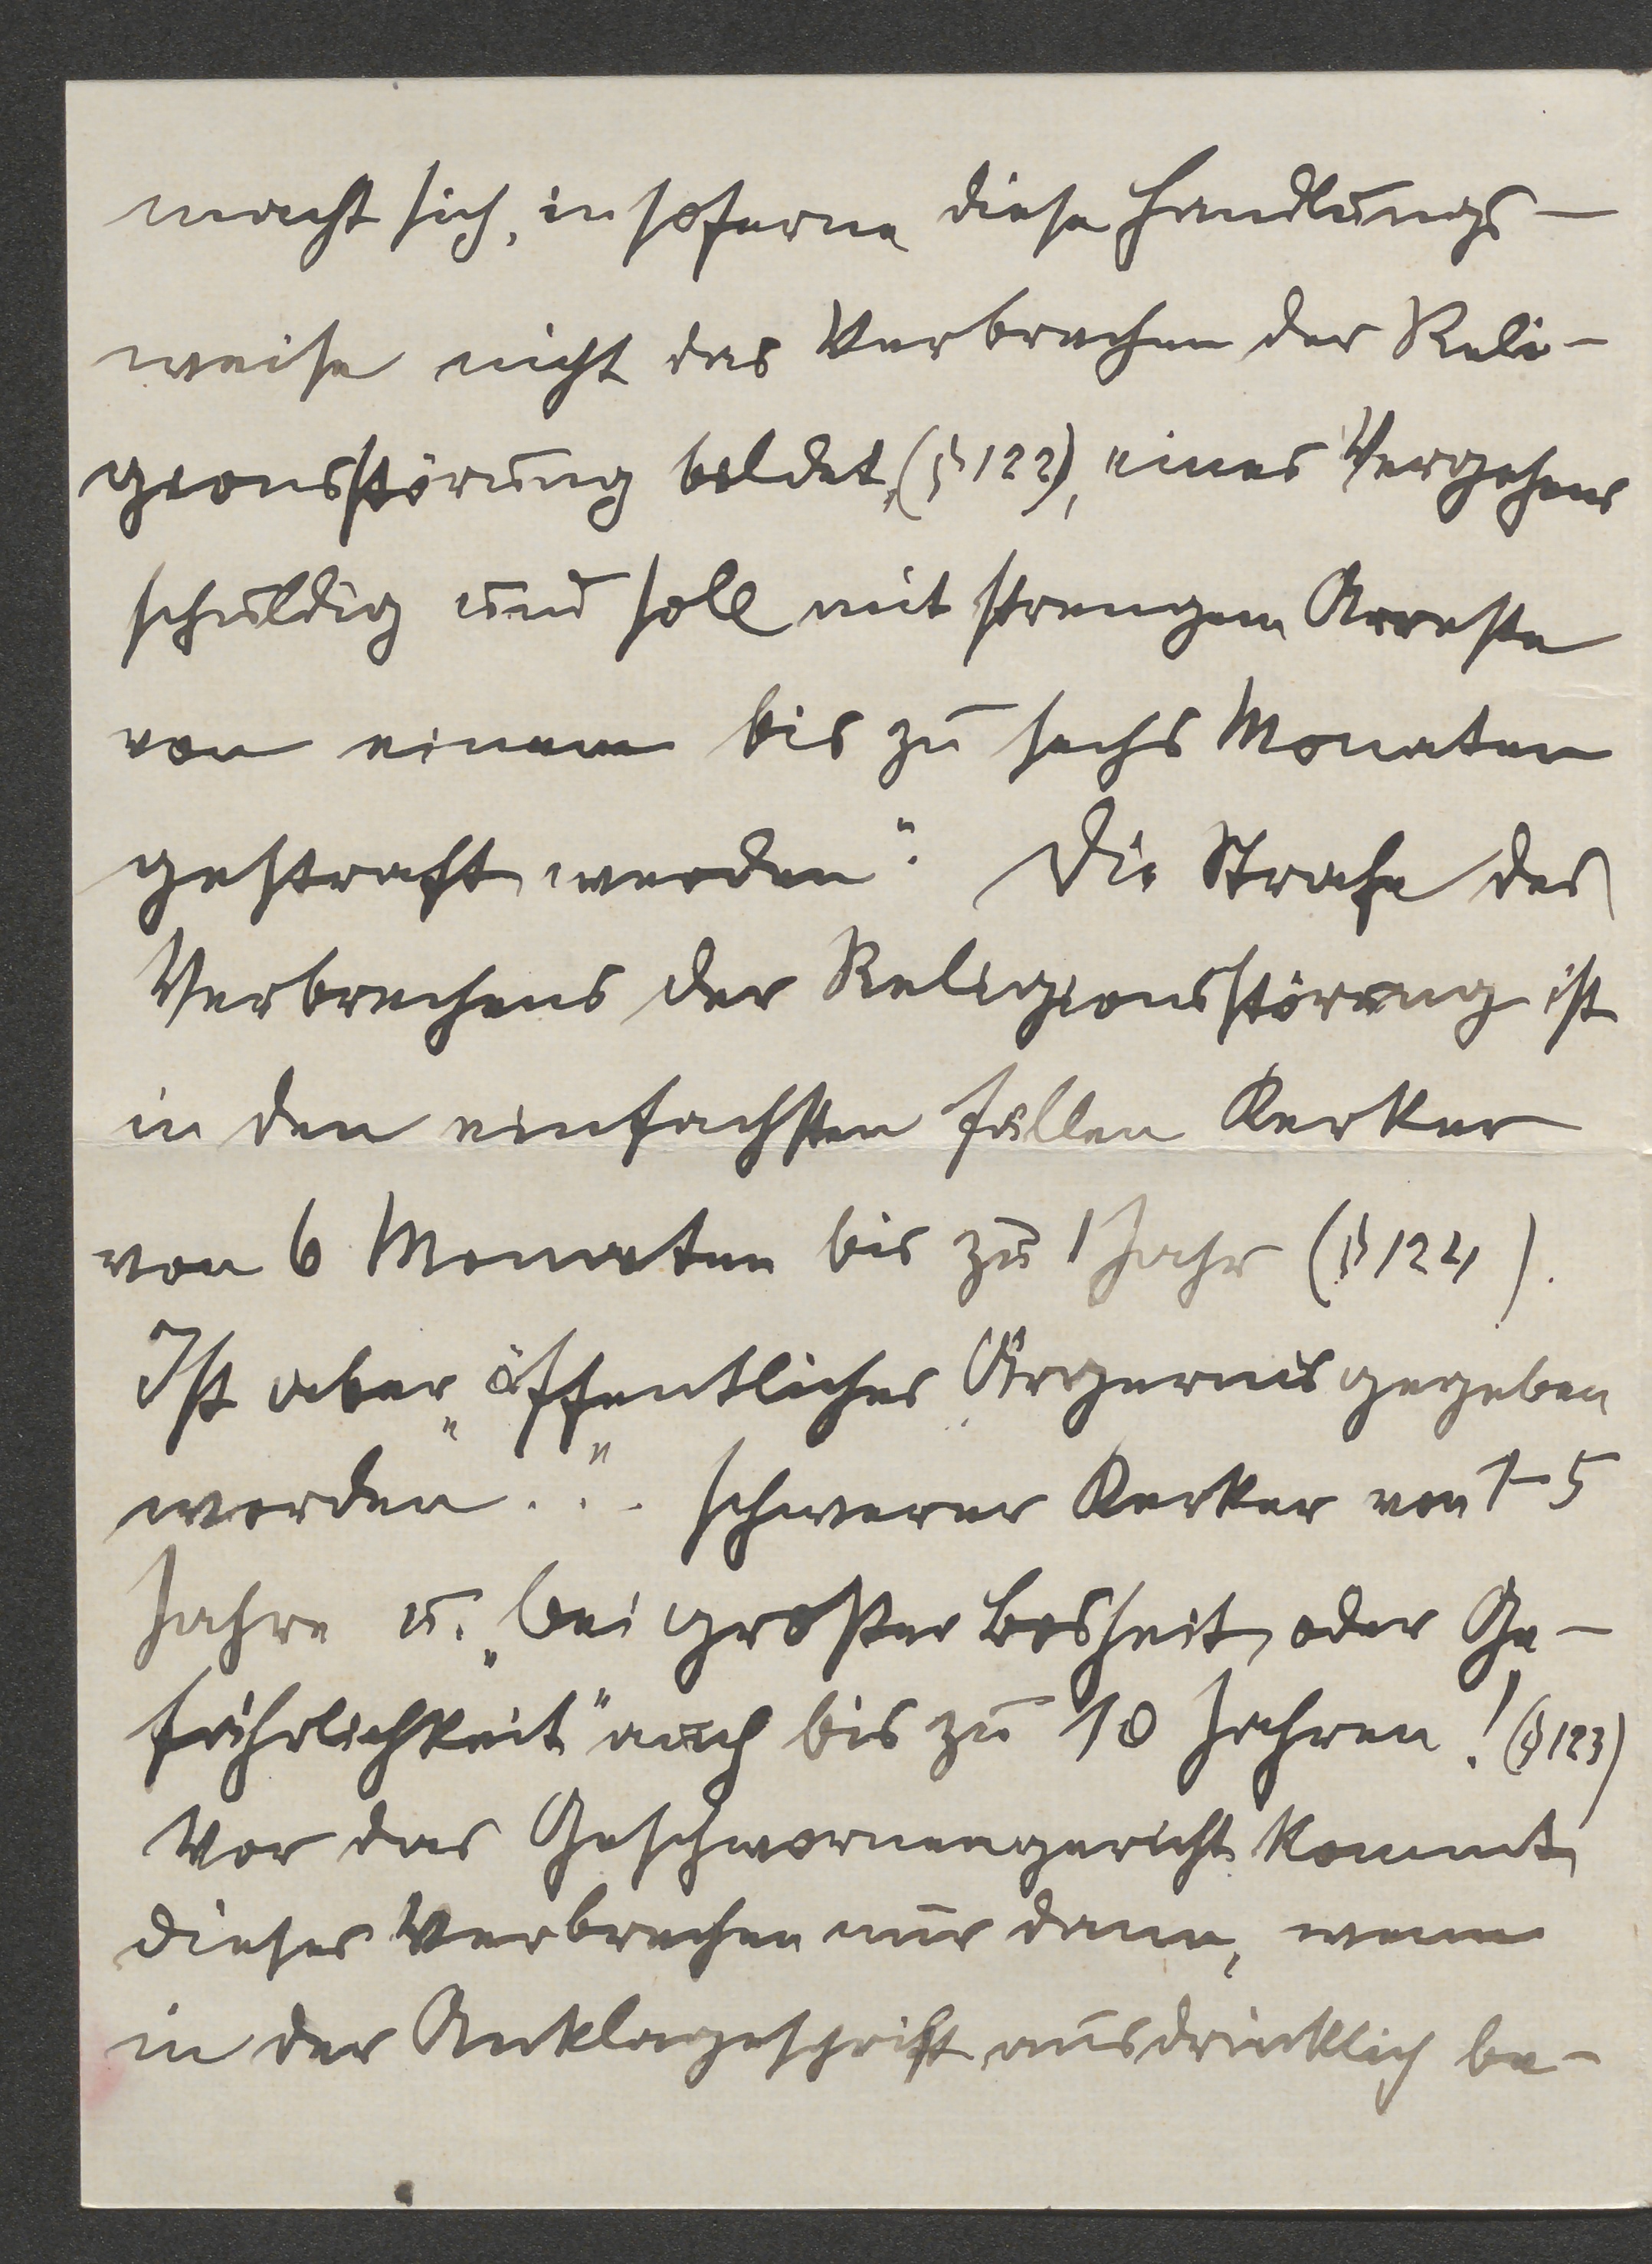 macht sich, insoferne diese Handlungs-
weise nicht das Verbrechen der Reli-
gionsstörung bildet, (§ 122), eines Vergehens
schuldig und soll mit strengem Arreste
von einem bis zu sechs Monaten
gestraft werden". Die Strafe des
Verbrechens der Religionsstörung ist
in den einfachsten Fällen Kerker
von 6 Monaten bis zu 1 Jahr (§ 124).
Ist aber „öffentliches Ärgernis gegeben
worden..." schwerer Kerker von 1-5
Jahre u. „bei großer Bosheit oder Ge-
fährlichkeit" auch bis zu 10 Jahren! (§ 123)
Vor das Geschwornengericht kommt
dieses Verbrechen nur dann, wenn
in der Anklageschrift ausdrücklich be-